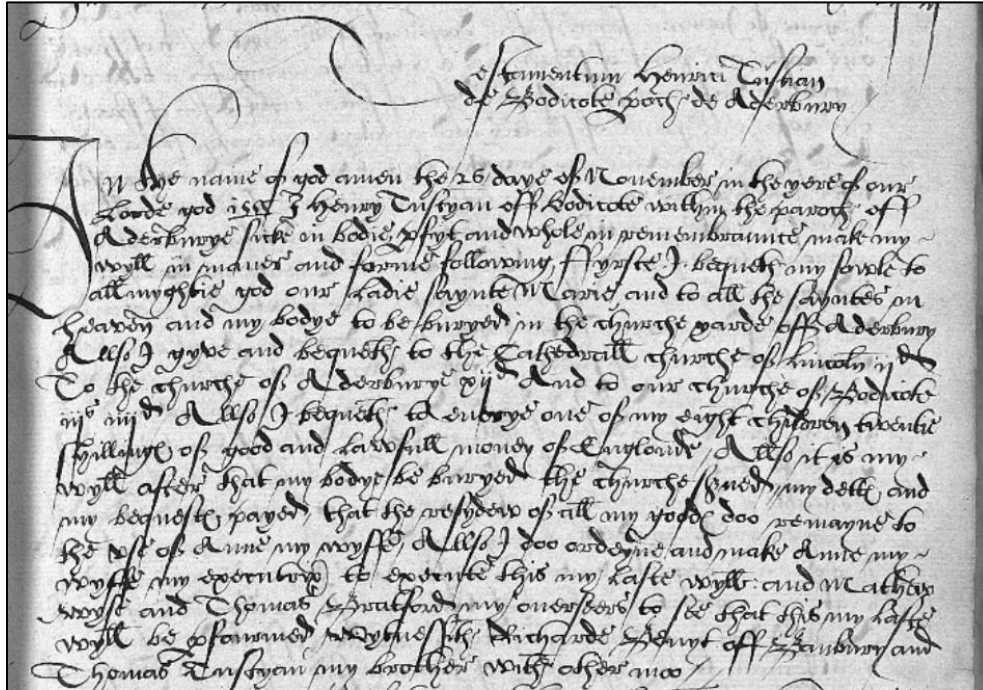 Testamentum Henrici Tustian
de Bodicote poch de Aderbury
IN the name of god amen the 26 daye of November in the yere of our
Lorde god I Henry Tustyan off Bodicote within the paroch off
Aderburye sicke in bodie pfyt and whole in remembraunce make my
wyll in maner and forme following, ffyrste I bequeth my sowle to
allmyghtie god our Ladie saynte Marie and to all the sayntes in
heaven and my bodye to be buryed in the churche yarde off Aderbury
Allso I gyve and bequeth to the Cathedrall churche of Lincoln iid
To the churche of Aderburye xiid And to our churche of Bodicote
iiis iiiid Allso I bequeth to everye one of my eight children twentie
shillinges of good and Lawfull money of Englonde, Allso it is my
wyll after that my bodye be buryed the churche sved, my dettes and
my bequestes payed, that the resydew of all my goodes doo remayne to
the use of Anne my wyffe, Allso I doo ordeyne and make Anne my
wyffe my executryx to execute this my Laste wyll and Mathew
wyse and Thomas Bratford my overseers to see that this my Laste
wyll be pfourmed, wytnessith Richarde Benyt off Banbury and
Thomas Tustyan my brother with other moo